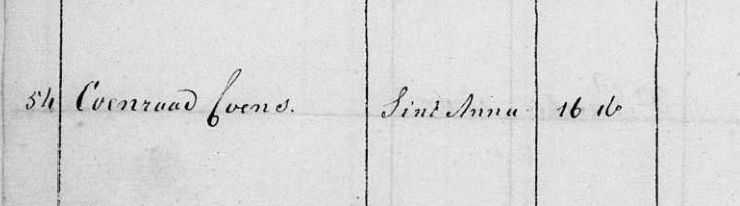 54 Coenraad Coens. Sint Anna 16 16